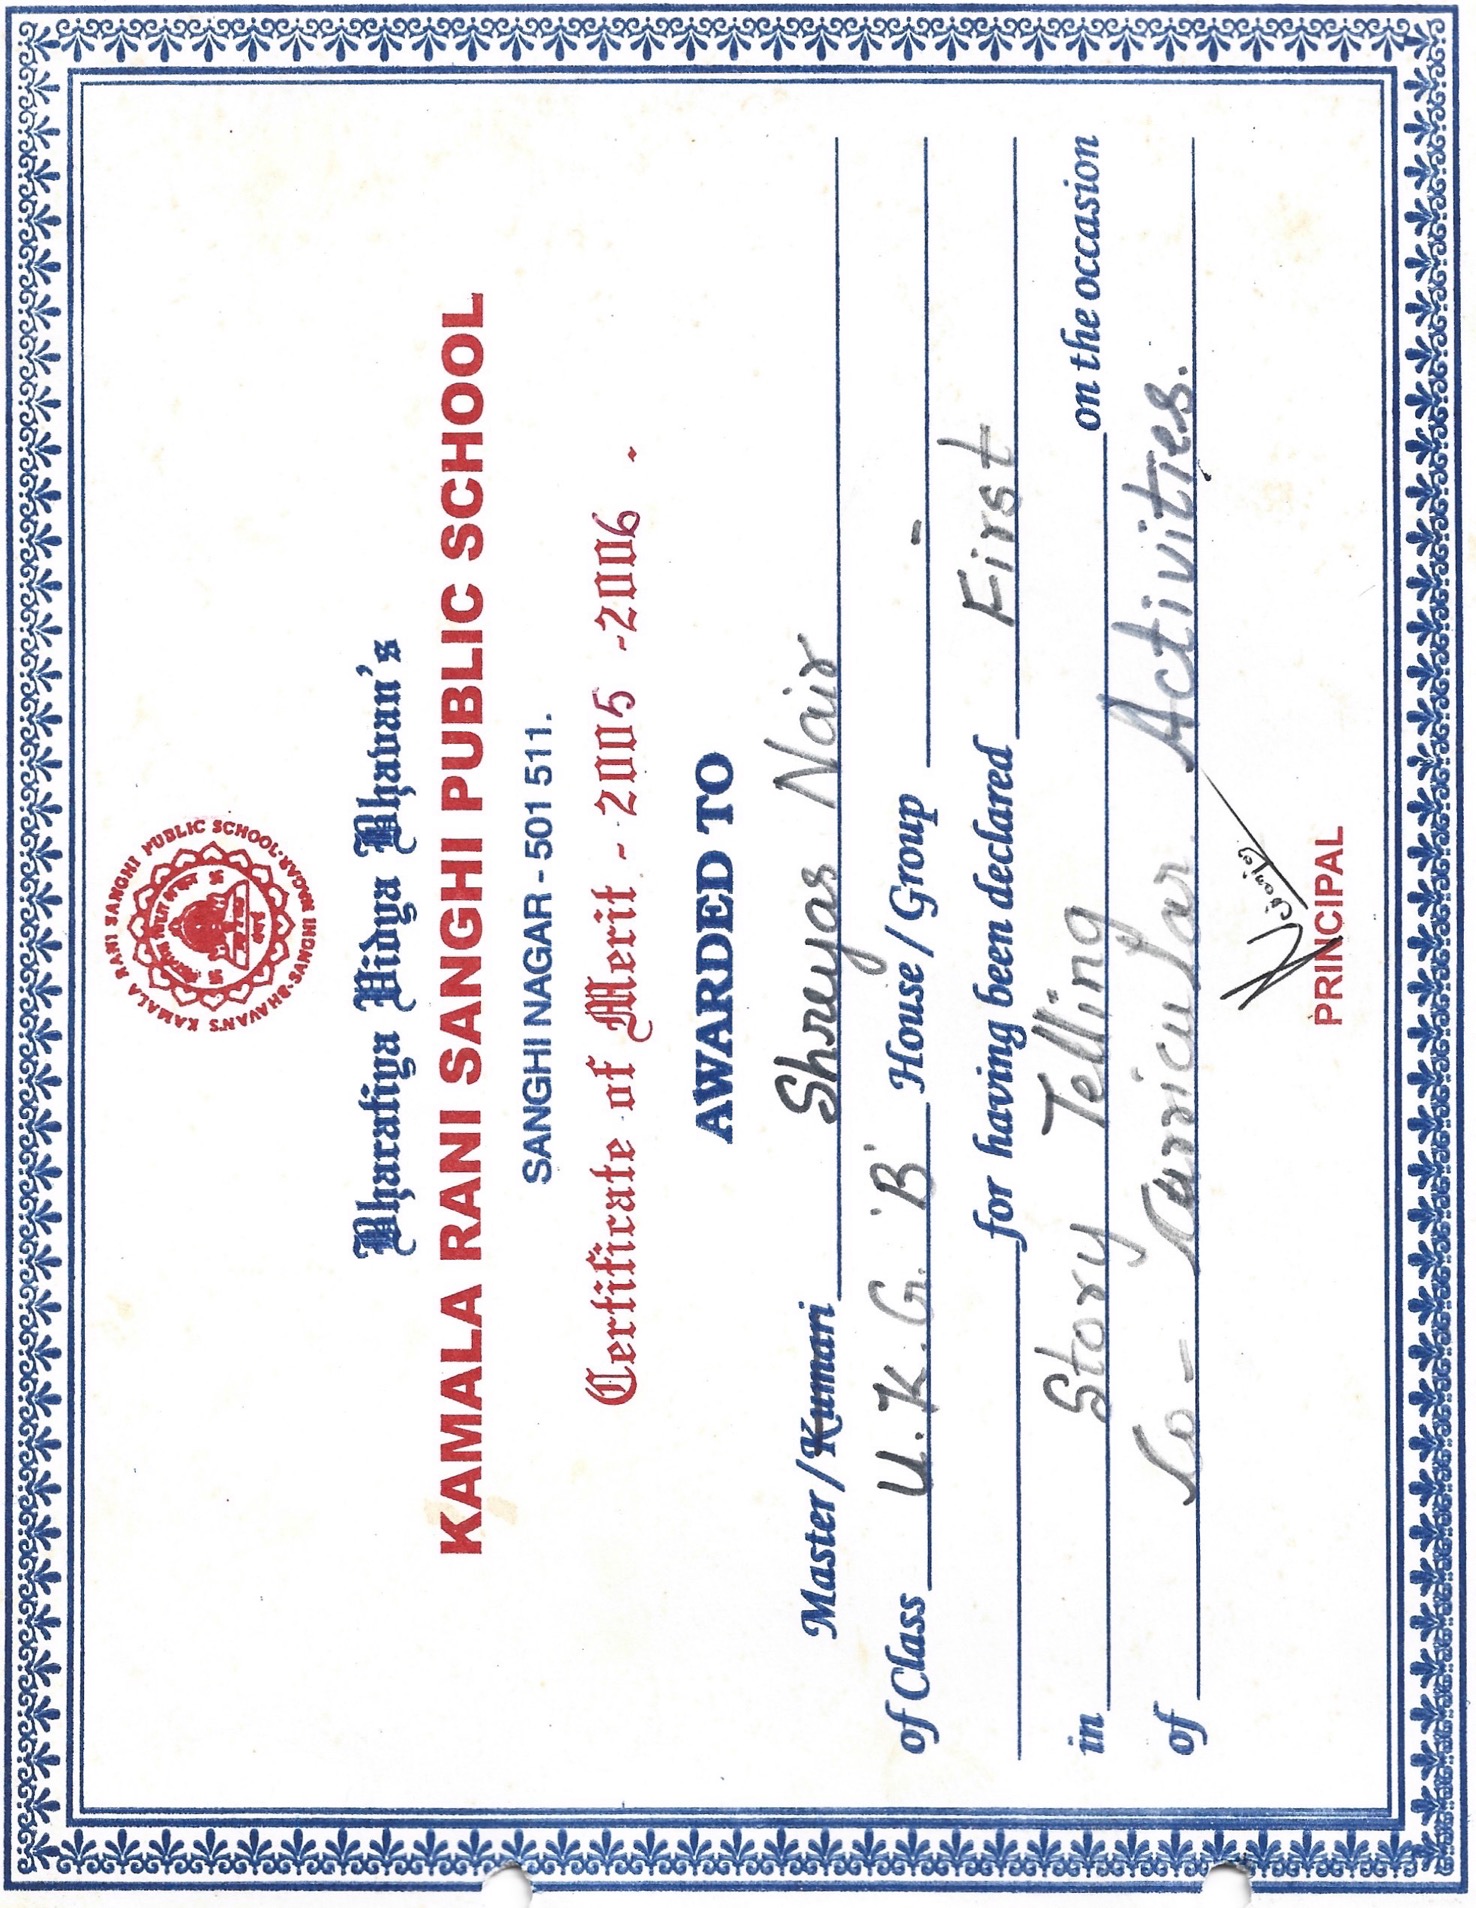 BHAVAN'S KAMALA RANI SANGHI PUBLIC SCHOOL · SANGHI NAGAR ·
Bharatiya Vidya Bhavan's
KAMALA RANI SANGHI PUBLIC SCHOOL
SANGHI NAGAR - 501 511.
Certificate of Merit - 2005 -2006 .
AWARDED TO
Master / Kumari Shreyas Nair
of Class U.K.G. 'B' House / Group -
for having been declared First
in Story Telling on the occasion
of Co-Curricular Activities.
PRINCIPAL